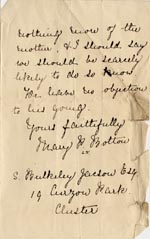 nothing more of the
mother, & I should say
we should be scarcely
likely to do so now
We have no objection
to his going.
Yours faithfully
Mary H Bolton
S. Bulkeley Jacson Esq
19 Curzon Park
Chester